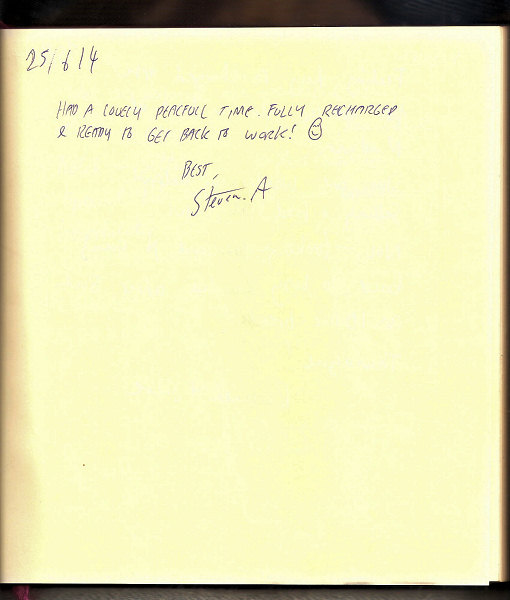 25/6/14
HAD A LOVELY PEACFULL TIME. FULLY RECHARGED
& READY TO GET BACK TO WORK! ☺
BEST,
Steven. A